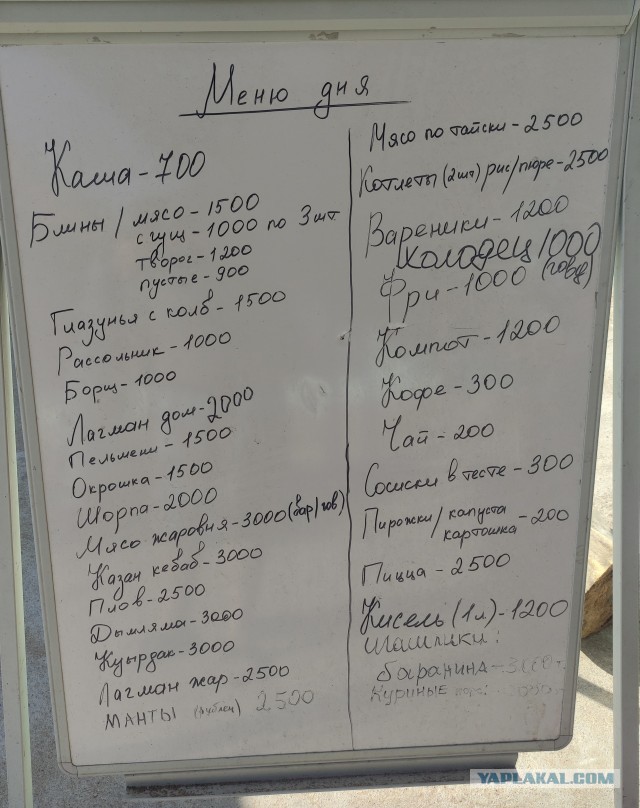 Меню дня
Каша - 700
Блины / мясо - 1500
сгущ - 1000 по 3 шт
творог - 1200
пустые - 900
Глазунья с колб - 1500
Рассольник - 1000
Борщ - 1000
Лагман дом - 2000
Пельмени - 1500
Окрошка - 1500
Шорпа - 2000
Мясо жаровня - 3000 (бар/гов)
Казан кебаб - 3000
Плов - 2500
Дымляма - 3000
Куырдак - 3000
Лагман жар - 2500
МАНТЫ 2500
Мясо по тайски - 2500
Котлеты (2шт) рис/пюре - 2500
Вареники - 1200
Холодец 1000
Фри - 1000 (говяд)
Компот - 1200
Кофе - 300
Чай - 200
Сосиски в тесте - 300
Пирожки / капуста
картошка - 200
Пицца - 2500
Кисель (1л) - 1200
Шашлыки:
баранина -
Куриные
YAPLAKAL.COM